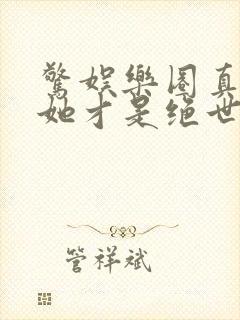 驚娛樂圈真
她才是绝世
管祥斌